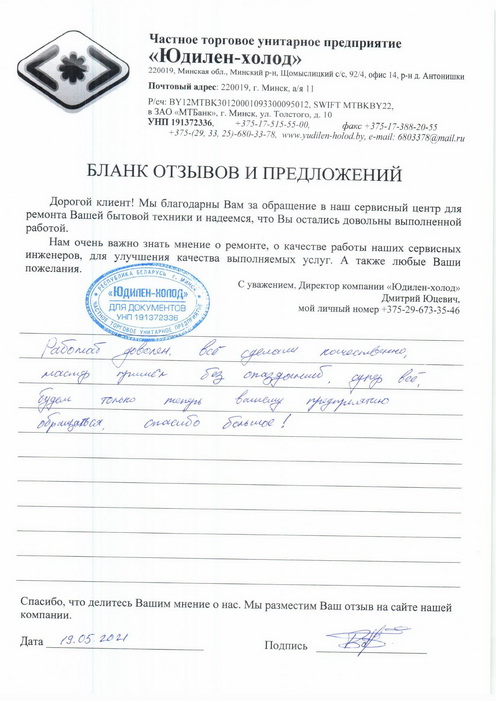 Частное торговое унитарное предприятие
«Юдилен-холод»
220019, Минская обл., Минский р-н, Щомыслицкий с/с, 92/4, офис 14, р-н д. Антонишки
Почтовый адрес: 220019, г. Минск, а/я 11
Р/сч: BY12MTBK30120001093300095012, SWIFT MTBKBY22,
в ЗАО «МТБанк», г. Минск, ул. Толстого, д. 10
УНП 191372336, +375-17-515-55-00, факс +375-17-388-20-55
+375-(29, 33, 25)-680-33-78, www.yudilen-holod.by, e-mail: 6803378@mail.ru
БЛАНК ОТЗЫВОВ И ПРЕДЛОЖЕНИЙ
Дорогой клиент! Мы благодарны Вам за обращение в наш сервисный центр для
ремонта Вашей бытовой техники и надеемся, что Вы остались довольны выполненной
работой.
Нам очень важно знать мнение о ремонте, о качестве работы наших сервисных
инженеров, для улучшения качества выполняемых услуг. А также любые Ваши
пожелания.
С уважением, Директор компании «Юдилен-холод»
Дмитрий Юцевич,
мой личный номер +375-29-673-35-46
РЕСПУБЛИКА БЕЛАРУСЬ Г. МИНСК
«ЮДИЛЕН-ХОЛОД»
ДЛЯ ДОКУМЕНТОВ
УНП 191372336
ЧАСТНОЕ ТОРГОВОЕ УНИТАРНОЕ ПРЕДПРИЯТИЕ
Работой доволен, всё сделали качественно,
мастер пришёл без опозданий, супер всё,
будем только теперь вашему предприятию
обращаться, спасибо большое!
Спасибо, что делитесь Вашим мнение о нас. Мы разместим Ваш отзыв на сайте нашей
компании.
Дата 19.05 2021 Подпись